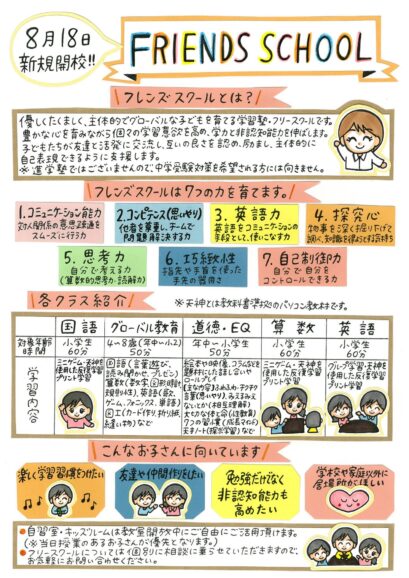 8月18日
新規開校!!
FRIENDS SCHOOL
フレンズスクールとは?
優しくたくましく、主体的でグローバルな子どもを育てる学習塾・フリースクールです。
豊かな心を育みながら1国での学習意欲を高め、学力と非認知能力を伸ばします。
子どもたちが友達と活発に交流し、互いの良さを認め、励まし、主体的に
自己表現できるように支援します。
※進学塾ではございませんので、中学受験対策を希望される方には向きません。
フレンズスクールは7つの力を育てます。
1.コミュニケーション能力
対人関係の意思疎通を
スムーズに行う力
2.コンピテンス(思いやり)
他者を尊重し、チームで
問題解決する力
3.英語力
英語をコミュニケーションの
手段として、使いこなす力
4.探究心
物事を深く掘り下げて
調べ、知識を得ようとする気持ち
5.思考力
自分で考える力
(算数的思考力・読解力)
6.巧緻性
指先や手首を使った
手先の器用さ
7.自己制御力
自分で自分を
コントロールできる力
各クラス紹介
※天神とは教科書準拠のパソコン教材です。
国語 グローバル教育 道徳・EQ 算数 英語
対象年齢
時間
小学生
60分
4〜8歳(年中〜小2)
50分
年中〜小学生
50分
小学生
60分
小学生
60分
学習内容
ミニゲーム・天神を
使用した反復学習
プリント学習
国語(言葉遊び、
読み聞かせ、プレゼン)
算数(数字、図形、時計
英語(歌、
ゲーム、フォニックス、単語)
工(カード作り、折り紙
など)
ロールプレイ
ミニゲーム・天神を
使用した反復学習
プリント学習
グループ学習・天神を
使用した反復学習
プリント学習
こんなお子さんに向いています
楽しく学習習慣をつけたい
友達や仲間作りをしたい
勉強だけでなく
非認知能力も
高めたい
学校や家庭以外に
居場所がほしい
●自習室・キッズルームは教室開放中にご自由にご活用頂けます。
(※当日授業のあるお子さんが優先となります。)
●フリースクールについては1個別に相談に乗らせていただきますので、
お気軽にお問い合わせください。